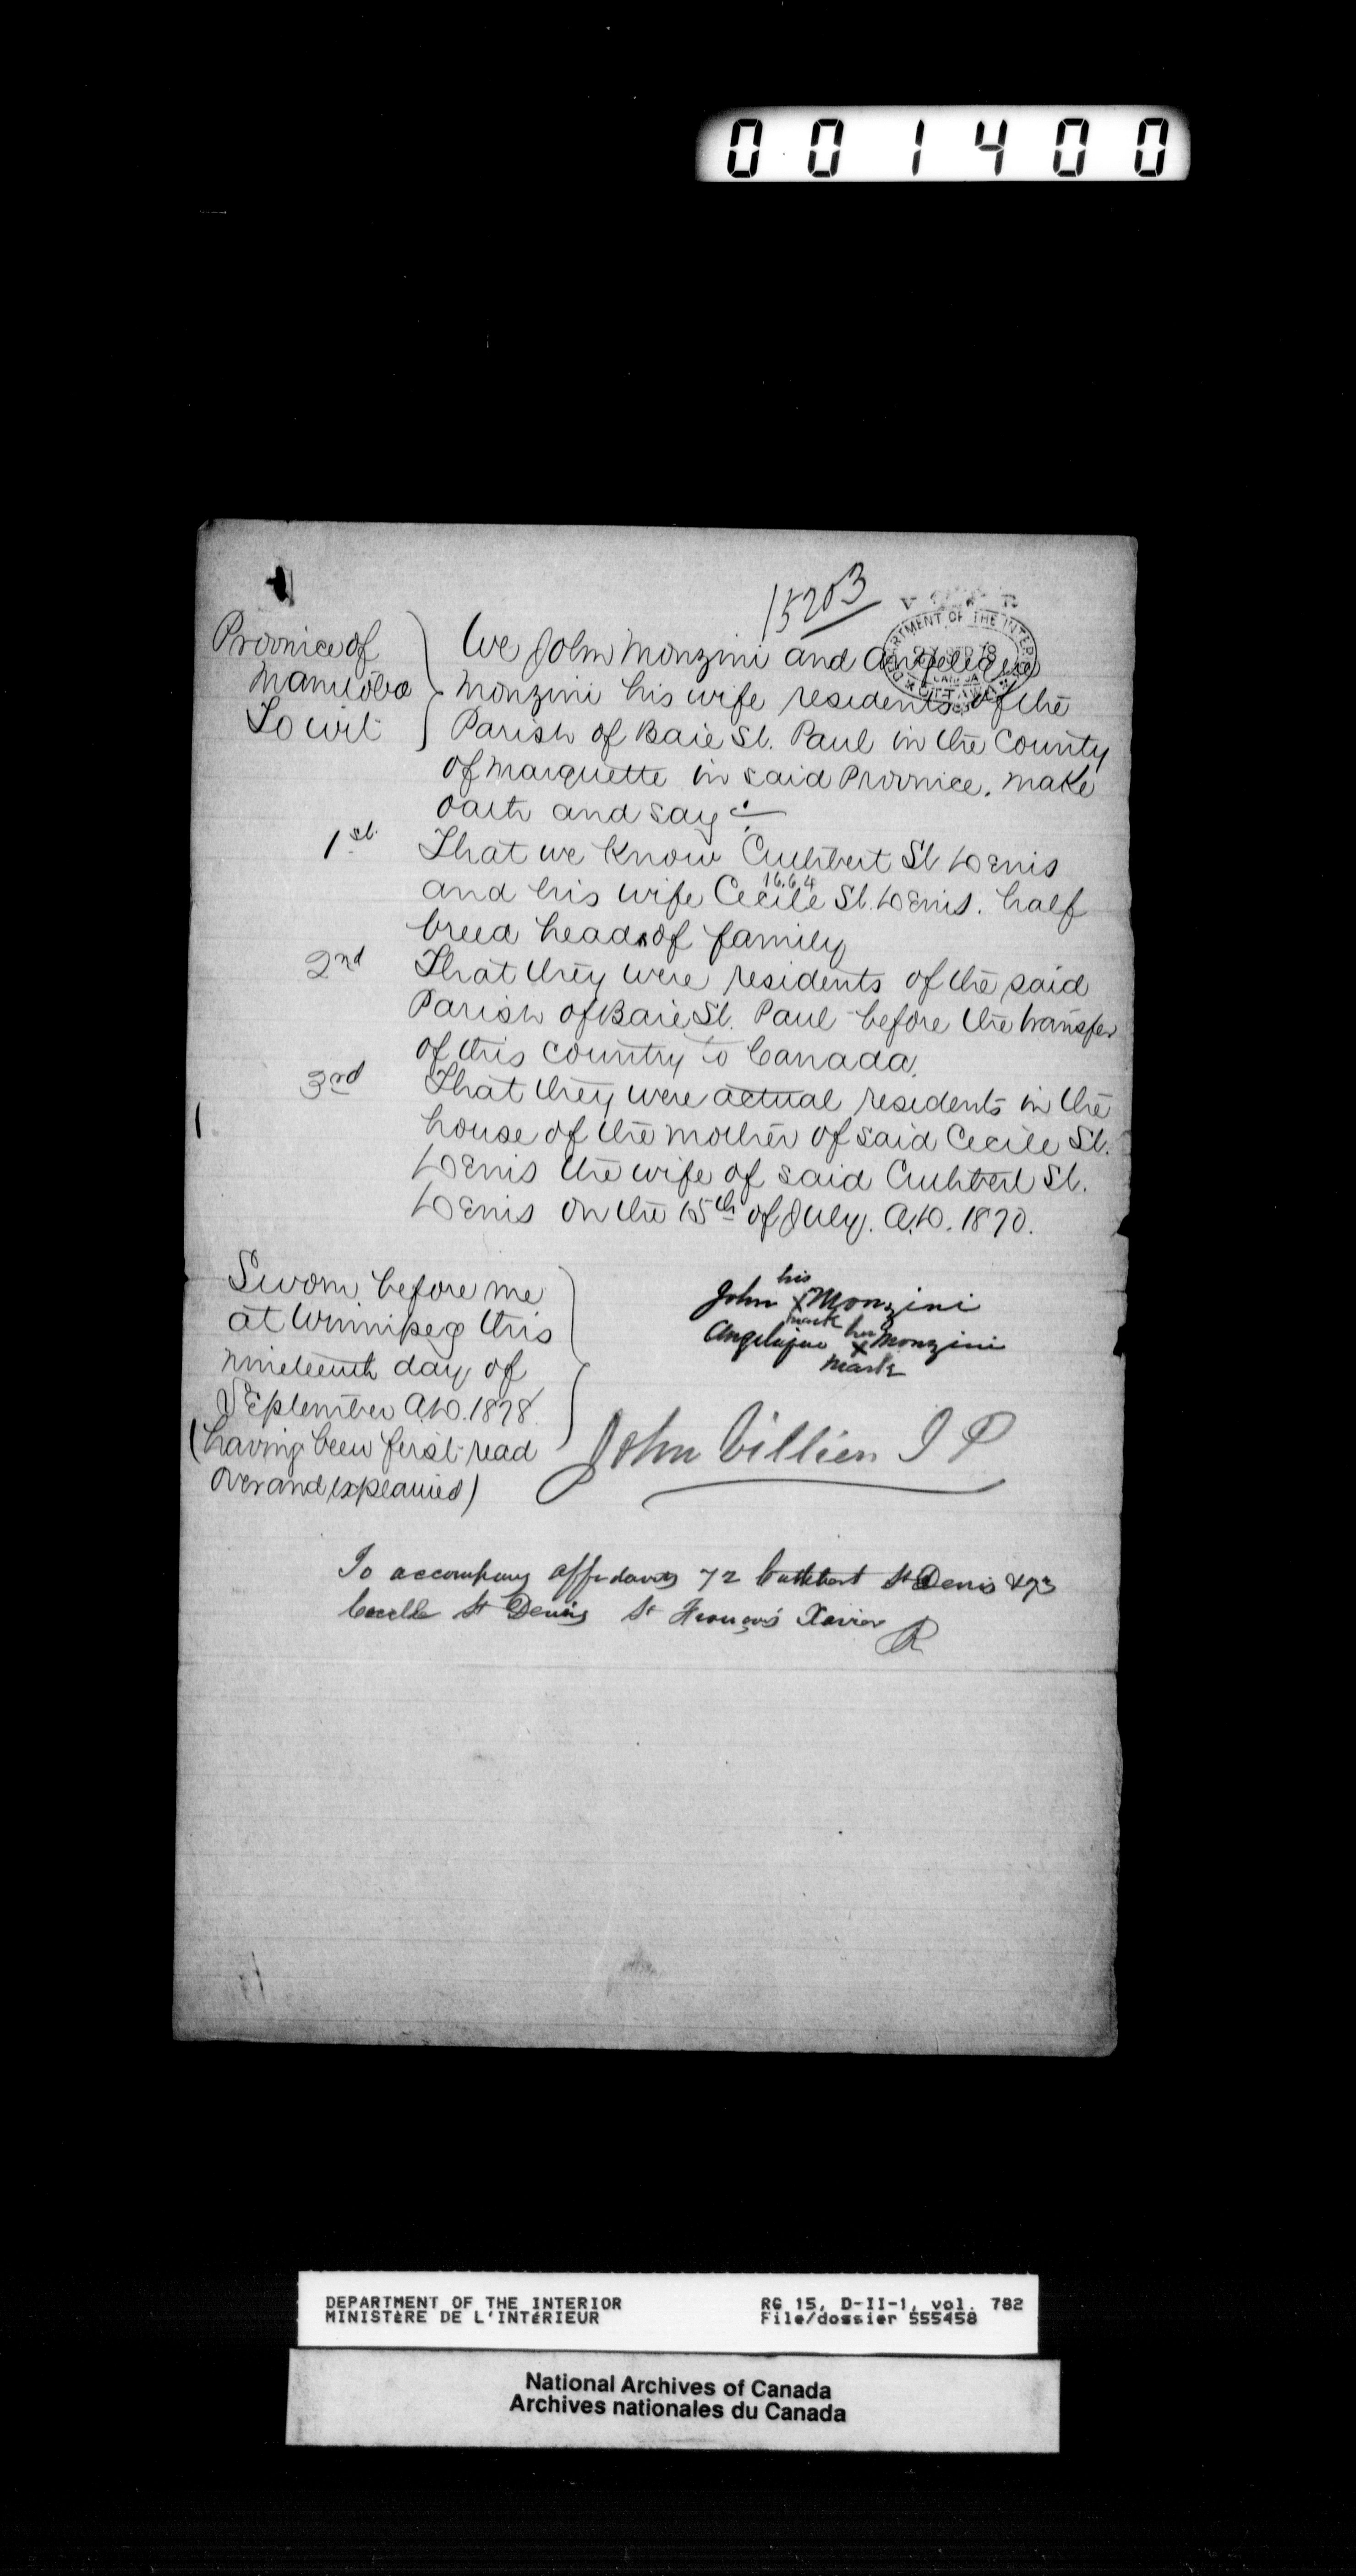 001400
15203
DEPARTMENT OF THE INTERIOR
CANADA
OTTAWA
Province of
Manitoba
To wit
We John Monzini and Angelique
Monzini his wife residents of the
Parish of Baie St. Paul in the County
of Marquette in said Province. make
oath and say :—
1st. That we know Cuthbert St. Denis
16.6.4
and his wife Cecile St. Denis. half
breed heads of family
2nd That they were residents of the said
Parish of Baie St. Paul before the transfer
of this country to Canada.
3rd That they were actual residents in the
house of the mother of said Cecile St.
Denis the wife of said Cuthbert St.
Denis on the 15th of July. A.D. 1870.
Sworn before me
at Winnipeg this
nineteenth day of
September A.D. 1878.
(having been first read
over and explained)
his
John X Monzini
mark
her
Angelique X Monzini
mark
John Villiers J P
To accompany affidavits 72 Cuthbert St Denis & 73
Cecille St Denis St François Xavier
R
DEPARTMENT OF THE INTERIOR
MINISTÈRE DE L'INTÉRIEUR
RG 15, D-II-1, vol. 782
File/dossier 555458
National Archives of Canada
Archives nationales du Canada